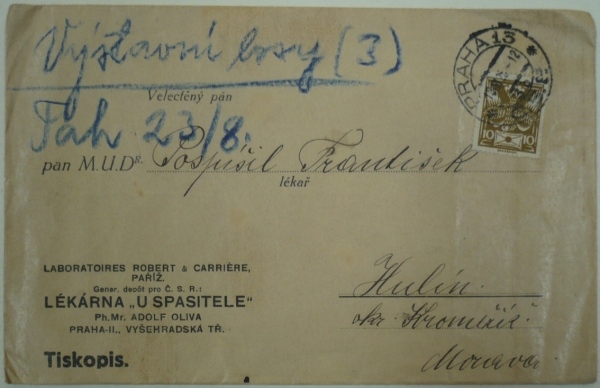 Výstavní losy (3)
Tah 23/8.
PRAHA 13
10 10
Velectěný pán
pan M.U.Dr. Pospíšil František
lékař
LABORATOIRES ROBERT & CARRIÈRE,
PAŘÍŽ.
Gener. depôt pro Č. S. R.:
LÉKÁRNA „U SPASITELE"
Ph. Mr. ADOLF OLIVA
PRAHA-II., VYŠEHRADSKÁ TŘ.
Tiskopis.
Hulín
okr. Kroměříž
Morava